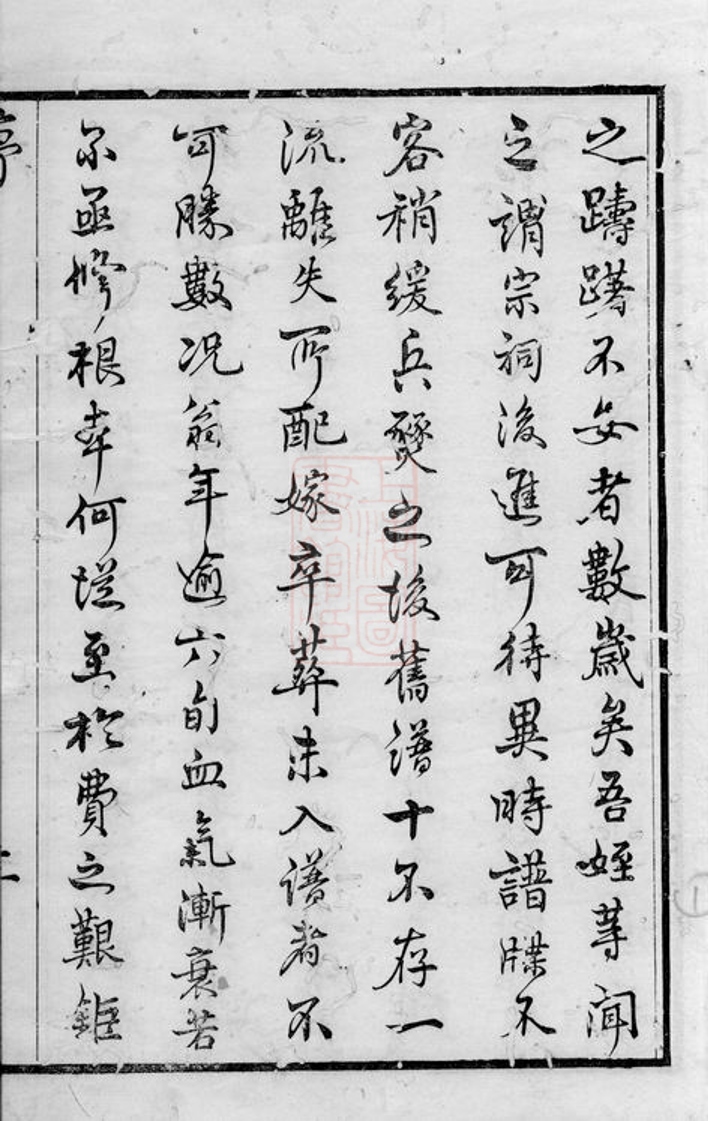 之躊躇不安者數歲矣吾姪等聞
之謂宗祠後進可待異時譜牒不
容稍緩兵燹之後舊譜十不存一
流離失所配嫁卒葬未入譜者不
可勝數况翁年逾六旬血氣漸衰若
不亟修根本何從至於費之艱鉅
序